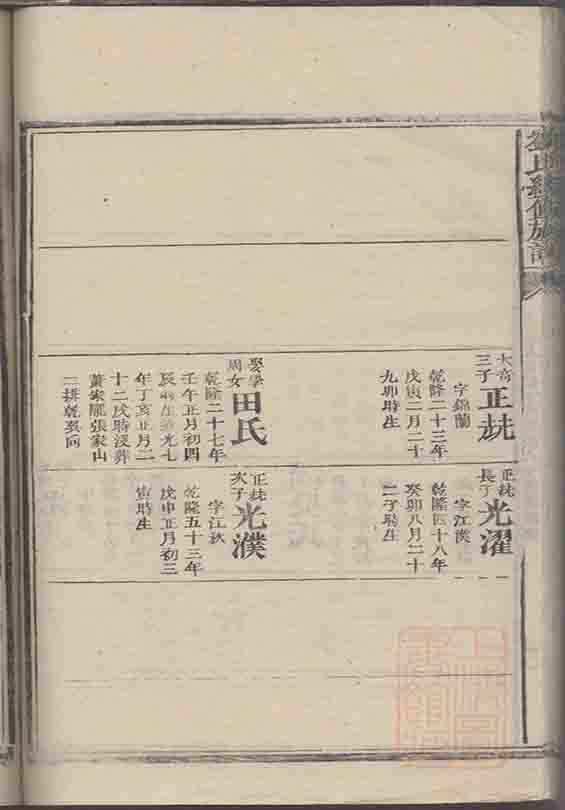 氏續修族譜
大奇
三子
正珗
字錦蘭
乾隆二十三年
戊寅二月二十
九卯時生
娶學
周女
田氏
乾隆二十七年
壬午正月初四
辰時生道光七
年丁亥正月二
十二戌時沒葬
蕭家隴張家山
二排乾巽向
正珗
長子
光濯
字江漢
乾隆四十八年
癸卯八月二十
二子時生
正珗
次子
光濮
字江
乾隆五十三年
戊申正月初三
寅時生
上海圖
書館藏